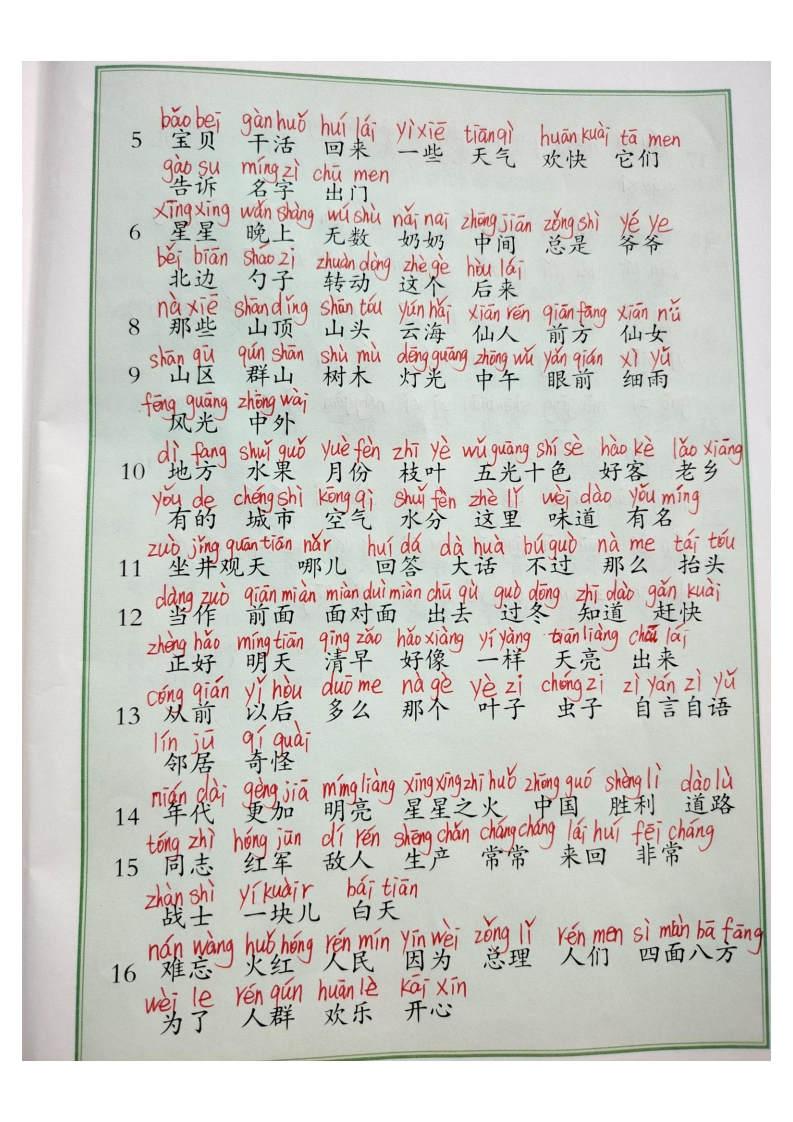 bǎo bèi gàn huǒ huí lái yì xiē tiān qì huān kuài tā men
5 宝贝 干活 回来 一些 天气 欢快 它们
gào su míng zì chū men
告诉 名字 出门
xīng xing wǎn shàng wú shù nǎi nai zhōng jiān zǒng shì yé ye
6 星星 晚上 无数 奶奶 中间 总是 爷爷
běi biān sháo zi zhuàn dòng zhè gè hòu lái
北边 勺子 转动 这个 后来
nà xiē shān dǐng shān tóu yún hǎi xiān rén qián fāng xiān nǚ
8 那些 山顶 山头 云海 仙人 前方 仙女
shān qū qún shān shù mù dēng guāng zhōng wǔ yǎn qián xì yǔ
9 山区 群山 树木 灯光 中午 眼前 细雨
fēng guāng zhōng wài
风光 中外
dì fang shuǐ guǒ yuè fèn zhī yè wǔ guāng shí sè hào kè lǎo xiāng
10 地方 水果 月份 枝叶 五光十色 好客 老乡
yǒu de chéng shì kōng qì shuǐ fèn zhè lǐ wèi dào yǒu míng
有的 城市 空气 水分 这里 味道 有名
zuò jǐng guān tiān nǎr huí dá dà huà bú guò nà me tái tóu
11 坐井观天 哪儿 回答 大话 不过 那么 抬头
dàng zuò qián miàn miàn duì miàn chū qù guò dōng zhī dào gǎn kuài
12 当作 前面 面对面 出去 过冬 知道 赶快
zhèng hǎo míng tiān qīng zǎo hǎo xiàng yí yàng tiān liàng chū lái
正好 明天 清早 好像 一样 天亮 出来
cóng qián yǐ hòu duō me nà gè yè zi chóng zi zì yán zì yǔ
13 从前 以后 多么 那个 叶子 虫子 自言自语
lín jū qí guài
邻居 奇怪
nián dài gèng jiā míng liàng xīng xīng zhī huǒ zhōng guó shèng lì dào lù
14 年代 更加 明亮 星星之火 中国 胜利 道路
tóng zhì hóng jūn dí rén shēng chǎn cháng cháng lái huí fēi cháng
15 同志 红军 敌人 生产 常常 来回 非常
zhàn shì yí kuàir bái tiān
战士 一块儿 白天
nán wàng huǒ hóng rén mín yīn wèi zǒng lǐ rén men sì miàn bā fāng
16 难忘 火红 人民 因为 总理 人们 四面八方
wèi le rén qún huān lè kāi xīn
为了 人群 欢乐 开心